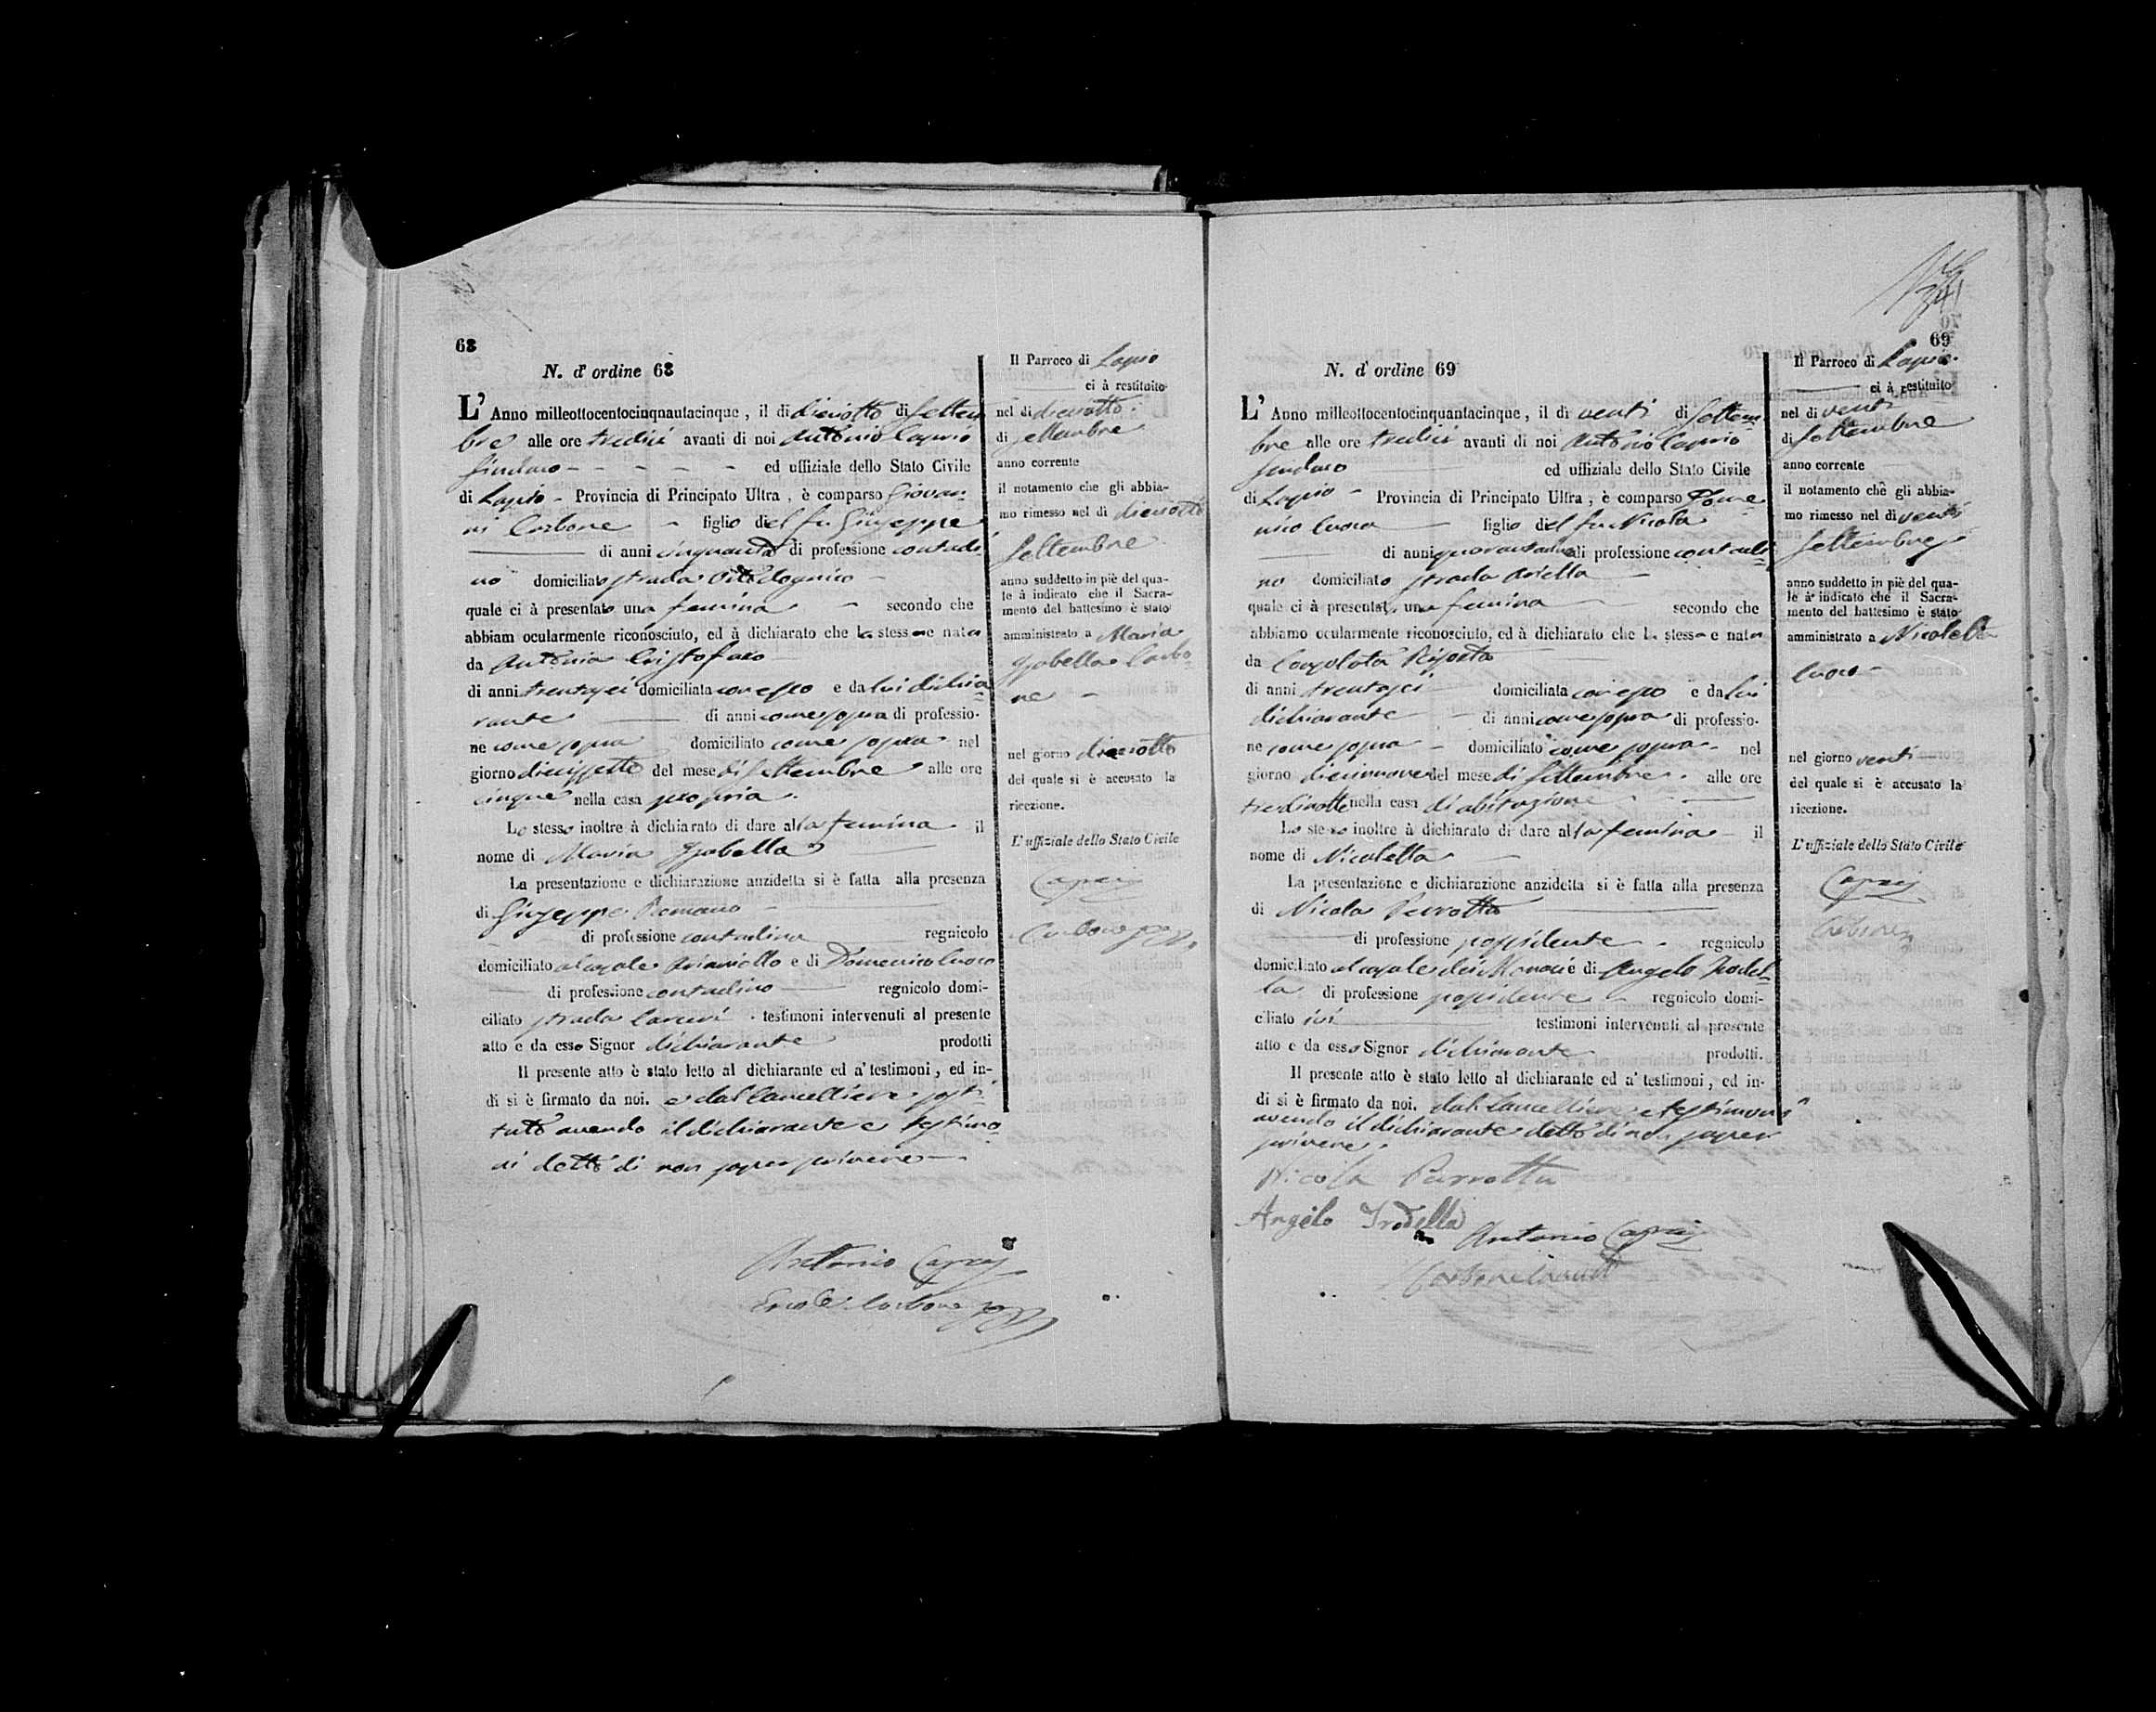 68
N. d' ordine 68
L' Anno milleottocentocinquantacinque, il dì dieciotto di Settem
bre alle ore tredici avanti di noi Antonio Caprio
Sindaco - - - - - ed uffiziale dello Stato Civile
di Lapio - Provincia di Principato Ultra, è comparso Giovan
ni Carbone - figlio del fu Giuseppe
di anni cinquanta di professione contadi
no domiciliato strada
quale ci à presentato una femina - secondo che
abbiam ocularmente riconosciuto, ed à dichiarato che la stessa e nata
da Antonia Cristofaro
di anni trentasei domiciliata con esso e da lui dichia
rante di anni come sopra di professio-
ne come sopra domiciliato come sopra nel
giorno diecissette del mese di Settembre alle ore
cinque nella casa propria.
Lo stesso inoltre à dichiarato di dare alla femina il
nome di Maria Isabella
La presentazione e dichiarazione anzidetta si è fatta alla presenza
di Giuseppe Romano
di professione contadino regnicolo
domiciliato al casale e di Domenico Cuoco
di professione contadino regnicolo domi-
ciliato strada testimoni intervenuti al presente
atto e da esso Signor dichiarante prodotti
Il presente atto è stato letto al dichiarante ed a' testimoni, ed in-
di si è firmato da noi. e dal Cancelliere sosti
tuto avendo il dichiarante e testimo
ni detto di non saper scrivere
Antonio Caprio
Carbone
Il Parroco di Lapio
ci à restituito
nel dì dieciotto
di Settembre
anno corrente
il notamento che gli abbia-
mo rimesso nel dì dieciotto
Settembre
anno suddetto in piè del qua-
le à indicato che il Sacra-
mento del battesimo è stato
amministrato a Maria
Isabella Carbo
ne -
nel giorno dieciotto
del quale si è accusato la
ricezione.
L'uffiziale dello Stato Civile
Caprio
Carbone
69
N. d' ordine 69
L' Anno milleottocentocinquantacinque, il dì venti di Settem
bre alle ore tredici avanti di noi Antonio Caprio
Sindaco ed uffiziale dello Stato Civile
di Lapio - Provincia di Principato Ultra, è comparso Dome
nico Cuoco figlio del fu Nicola
di anni di professione contadi
no domiciliato strada
quale ci à presentato una femina secondo che
abbiamo ocularmente riconosciuto, ed à dichiarato che la stessa e nata
da
di anni trentasei domiciliata con esso e da lui
dichiarante - di anni come sopra di professio-
ne come sopra - domiciliato come sopra - nel
giorno diecinnove del mese di Settembre alle ore
nella casa di abitazione
Lo stesso inoltre à dichiarato di dare alla femina - il
nome di Nicoletta
La presentazione e dichiarazione anzidetta si è fatta alla presenza
di Nicola Perrotta
di professione possidente regnicolo
domiciliato al casale dei Monaci e di Angelo Trodel
la di professione possidente - regnicolo domi-
ciliato ivi testimoni intervenuti al presente
atto e da esso Signor dichiarante prodotti.
Il presente atto è stato letto al dichiarante ed a' testimoni, ed in-
di si è firmato da noi, dal Cancelliere e testimoni
avendo il dichiarante detto di non saper
scrivere.
Nicola Perrotta
Angelo Trodella
Antonio Caprio
Carbone
Il Parroco di Lapio
ci à restituito
nel dì venti
di Settembre
anno corrente
il notamento che gli abbia-
mo rimesso nel dì venti
Settembre
anno suddetto in piè del qua-
le à indicato che il Sacra-
mento del battesimo è stato
amministrato a Nicoletta
Cuoco -
nel giorno venti
del quale si è accusato la
ricezione.
L'uffiziale dello Stato Civile
Caprio
Carbone